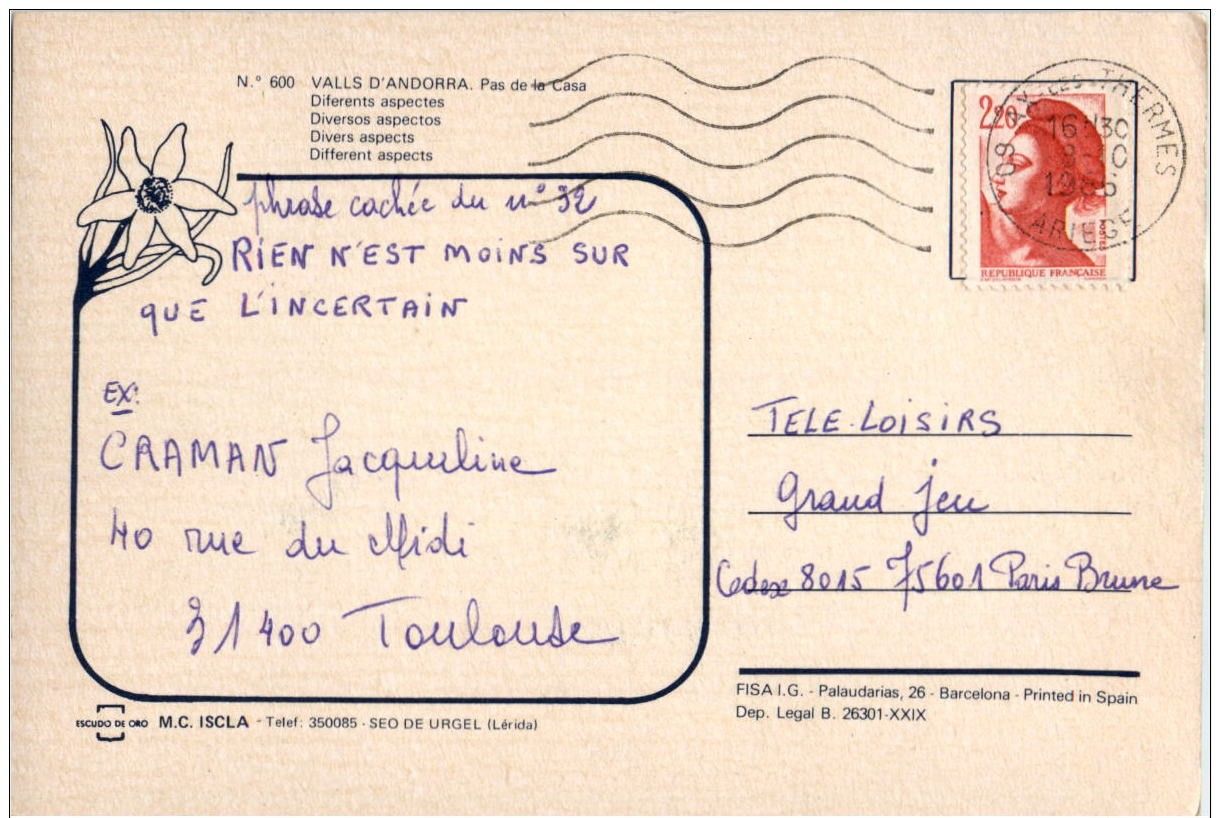 N.° 600 VALLS D'ANDORRA. Pas de la Casa
Diferents aspectes
Diversos aspectos
Divers aspects
Different aspects
phrase cachée du n° 32
RIEN N'EST MOINS SUR
QUE L'INCERTAIN
EX:
CRAMAN Jacqueline
40 rue du Midi
31400 Toulouse
2,20
POSTES
REPUBLIQUE FRANÇAISE
09 AX-LES-THERMES
16H30
1986
ARIEGE
TELE-LOISIRS
Grand jeu
Cedex 8015 75601 Paris Brune
FISA I.G. - Palaudarias, 26 - Barcelona - Printed in Spain
Dep. Legal B. 26301-XXIX
ESCUDO DE ORO M.C. ISCLA - Telef: 350085 - SEO DE URGEL (Lérida)